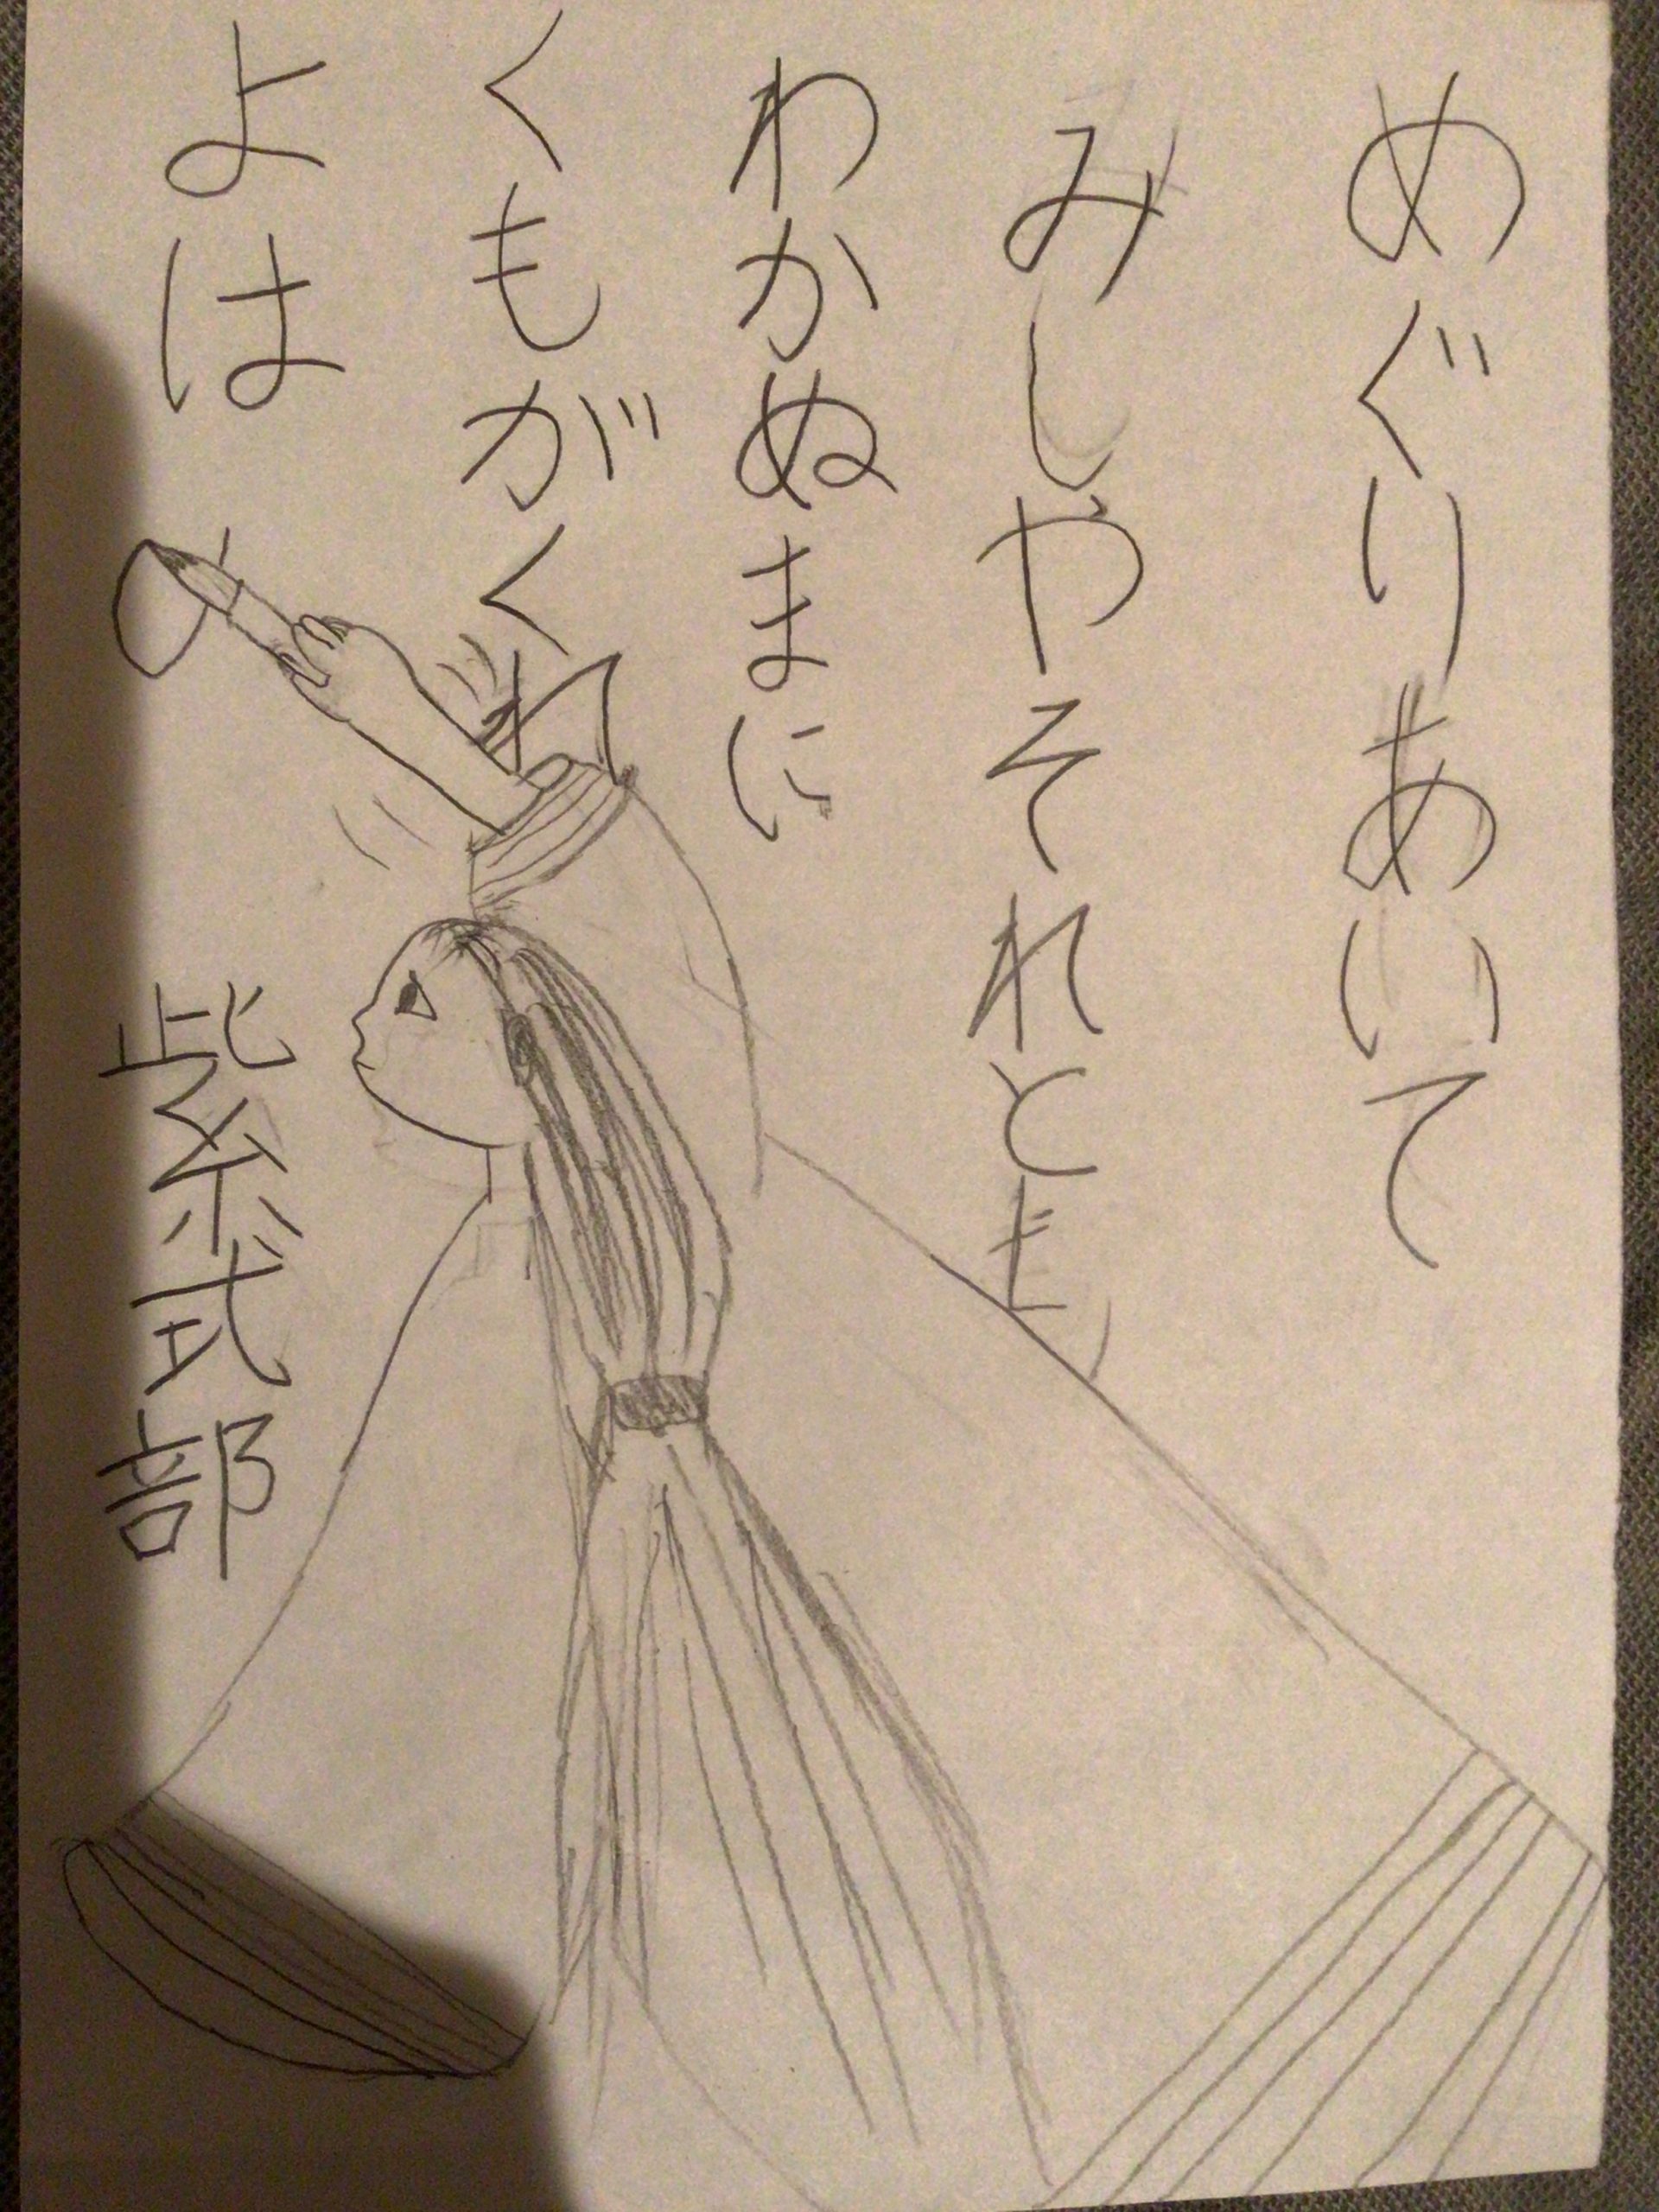 めぐりあいて
みしやそれとも
わかぬまに
くもがくれ
よはの
紫式部